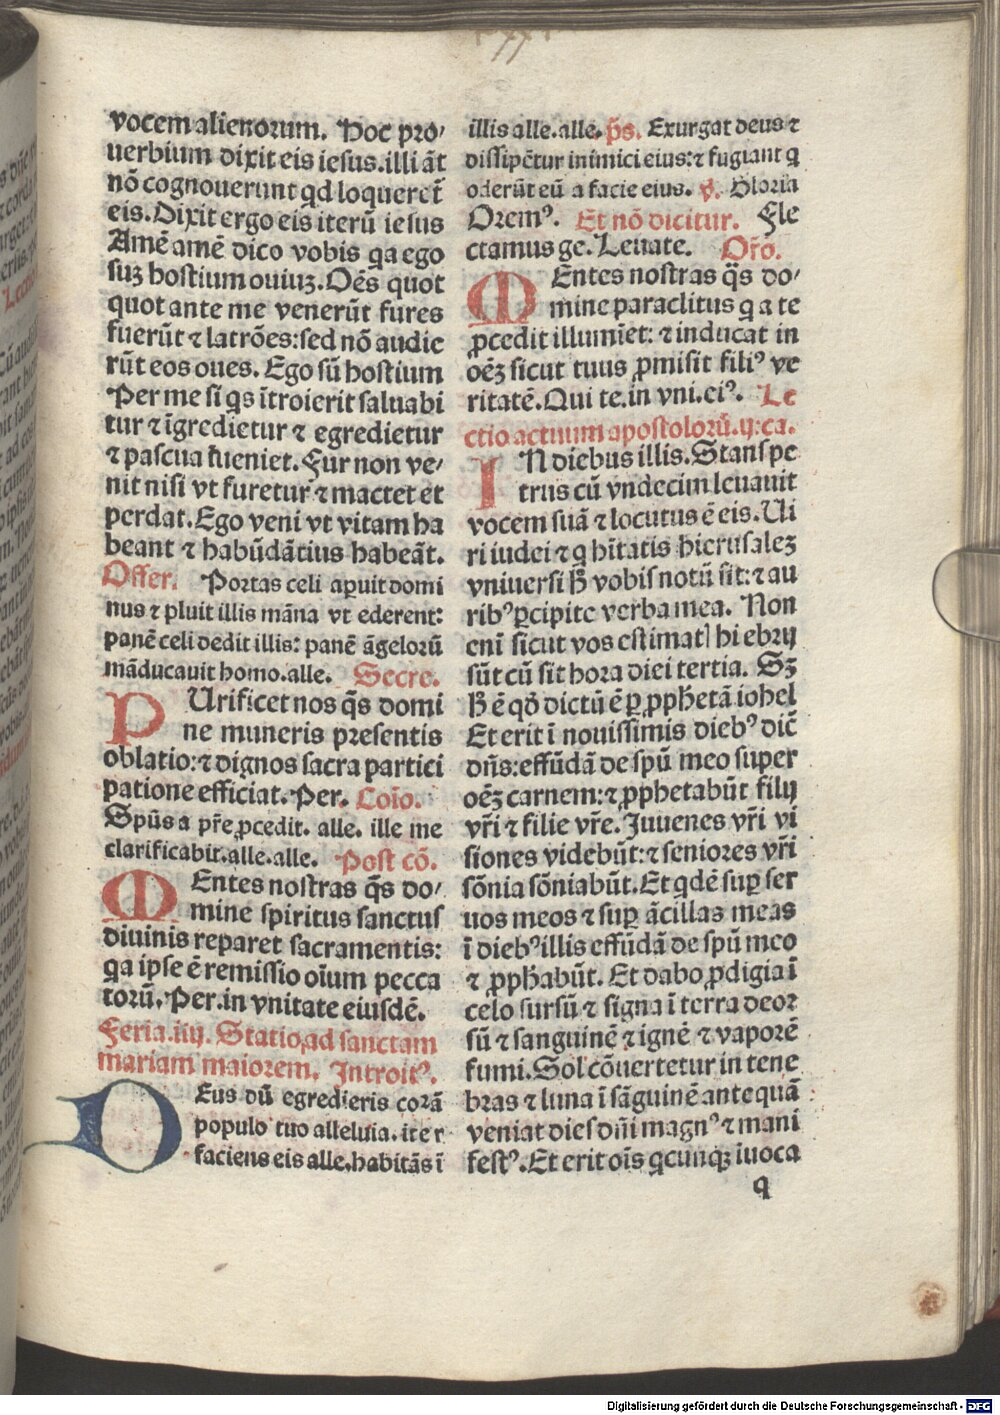 vocem alienorum. Hoc pro/
uerbium dixit eis iesus. illi āt
nō cognouerunt qd loqueret̄
eis. Dixit ergo eis iterū iesus
Amē amē dico vobis qa ego
suʒ hostium ouiuʒ. Oēs quot
quot ante me venerūt fures
fuerūt ⁊ latrōes: sed nō audie
rūt eos oues. Ego sū hostium
Per me si qs ītroierit saluabi
tur ⁊ īgredietur ⁊ egredietur
⁊ pascua īueniet. Fur non ve/
nit nisi vt furetur ⁊ mactet et
perdat. Ego veni vt vitam ha
beant ⁊ habūdātius habeāt.
Offer. Portas celi aꝑuit domi
nus ⁊ pluit illis māna vt ederent:
panē celi dedit illis: panē āgelorū
māducauit homo. alle. Secre.
PUrificet nos q̄s domi
ne muneris presentis
oblatio: ⁊ dignos sacra partici
patione efficiat. Per. Coīo.
Spūs a pr̄e ꝓcedit. alle. ille me
clarificabit. alle. alle. Post cō.
MEntes nostras q̄s do/
mine spiritus sanctus
diuinis reparet sacramentis:
qa ipse ē remissio oīum pecca
torū. Per. in vnitate eiusdē.
Feria. iiij. Statio ad sanctam
mariam maiorem. Introitꝰ.
DEus dū egredieris corā
populo tuo alleluia. iter
faciens eis alle. habitās ī
illis alle. alle. p̄s. Exurgat deus ⁊
dissipētur inimici eius: ⁊ fugiant q
oderūt eū a facie eius. v. Gloria
Oremꝰ. Et nō dicitur. Fle
ctamus ge. Leuate. Or̄o.
MEntes nostras q̄s do/
mine paraclitus q a te
ꝓcedit illumīet: ⁊ inducat in
oēʒ sicut tuus ꝓmisit filiꝰ ve
ritatē. Qui te. in vni. eiꝰ. Le
ctio actuum apostolorū. ij. ca.
IN diebus illis. Stans pe
trus cū vndecim leuauit
vocem suā ⁊ locutus ē eis. Ui
ri iudei ⁊ q hītatis hierusaleʒ
vniuersi h̄ vobis notū sit: ⁊ au
ribꝰ ꝑcipite verba mea. Non
enī sicut vos estimatꝭ hi ebrij
sūt cū sit hora diei tertia. Sʒ
h̄ ē qđ dictū ē ꝑ ꝓphetā iohel
Et erit ī nouissimis diebꝰ dic̄
dn̄s: effūdā de spū meo super
oēʒ carnem: ⁊ ꝓphetabūt filij
vr̄i ⁊ filie vr̄e. Juuenes vr̄i vi
siones videbūt: ⁊ seniores vr̄i
sōnia sōniabūt. Et qdē suꝑ ser
uos meos ⁊ suꝑ ācillas meas
ī diebꝰ illis effūdā de spū meo
⁊ ꝓphabūt. Et dabo ꝓdigia ī
celo sursū ⁊ signa ī terra deor
sū ⁊ sanguinē ⁊ ignē ⁊ vaporē
fumi. Sol cōuertetur in tene
bras ⁊ luna ī sāguinē antequā
veniat dies dn̄i magnꝰ ⁊ mani
festꝰ. Et erit oīs qcunqʒ īuoca
q
Digitalisierung gefördert durch die Deutsche Forschungsgemeinschaft - DFG